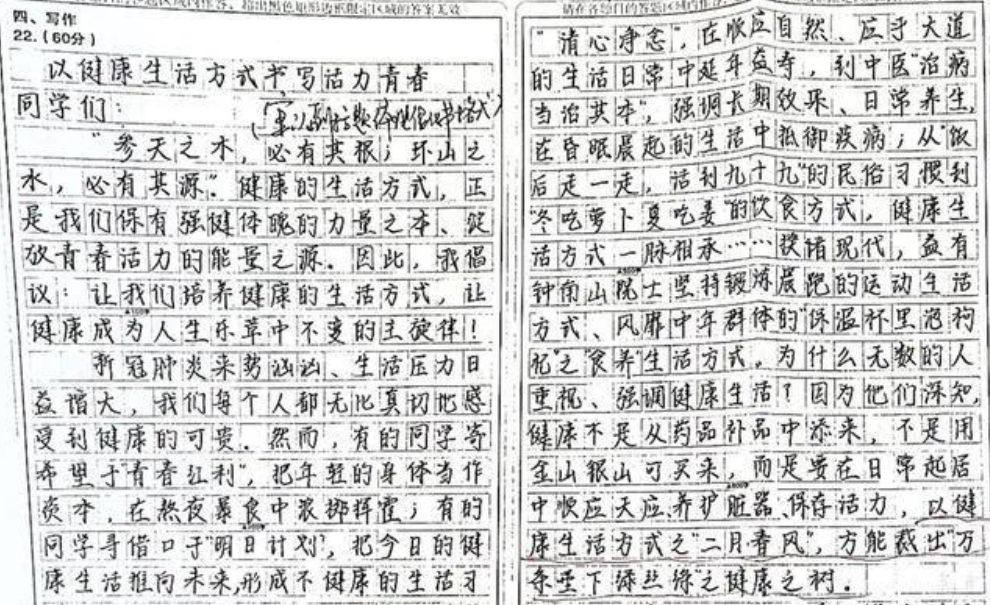 四、写作
22.(60分)
以健康生活方式书写活力青春
同学们：
"参天之木，必有其根；环山之
水，必有其源"。健康的生活方式，正
是我们保有强健体魄的力量之本、绽
放青春活力的能量之源。因此，我倡
议：让我们培养健康的生活方式，让
健康成为人生乐章中不变的主旋律！
新冠肺炎来势汹汹、生活压力日
益增大，我们每个人都无比真切地感
受到健康的可贵。然而，有的同学寄
希望于"青春红利"，把年轻的身体当作
资本，在熬夜暴食中浪掷挥霍；有的
同学寻借口于"明日计划"，把今日的健
康生活推向未来，形成不健康的生活习
请在各题目的答题区域内作答，
"清心净念"，在顺应自然、应乎大道
的生活日常中延年益寿，到中医"治病
当治其本"，强调长期效果、日常养生，
在昏眠晨起的生活中抵御疾病；从"饭
后走一走，活到九十九"的民俗习惯到
"冬吃萝卜夏吃姜"的饮食方式，健康生
活方式一脉相承……投诸现代，益有
钟南山院士坚持锻炼晨跑的运动生活
方式、风靡中年群体的"保温杯里泡枸
杞"之"食养"生活方式，为什么无数的人
重视、强调健康生活？因为他们深知，
健康不是从药品补品中添来，不是用
金山银山可买来，而是要在日常起居
中顺应天应、养护脏器、保存活力，以健
康生活方式之"二月春风"，方能裁出"万
条垂下绿丝绦"之健康之树。